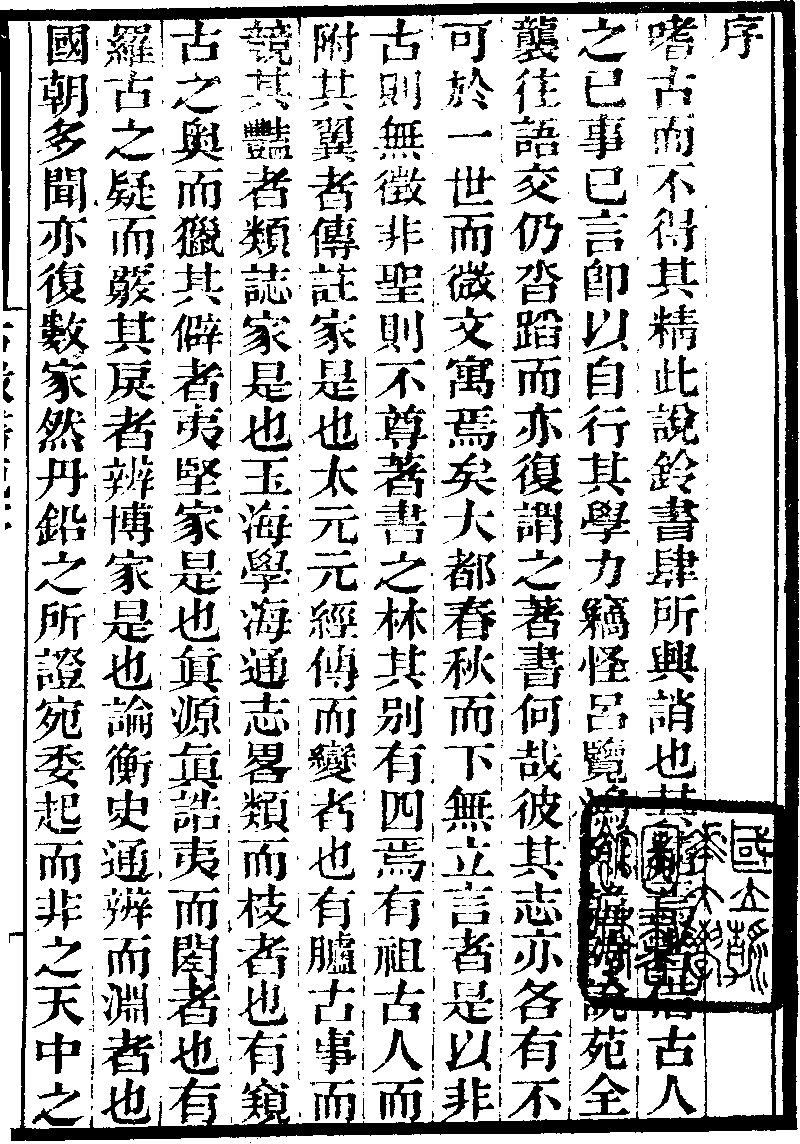 序
嗜古而不得其精此說鈴書肆所興誚也其立言借古人
之已事已言卽以自行其學力竊怪呂覽鴻說苑全
襲往語交仍沓蹈而亦復謂之著書何哉彼其志亦各有不
可於一世而微文寓焉矣大都春秋而下無立言者是以非
古則無徵非聖則不尊著書之林其别有四焉有祖古人而
附其翼者傳註家是也太元元經傳而變者也有臚古事而
競其豔者類誌家是也玉海學海通志畧類而枝者也有窺
古之奥而獵其僻者夷堅家是也眞源眞誥夷而閏者也有
羅古之疑而覈其戾者辨博家是也論衡史通辨而淵者也
國朝多聞亦復數家然丹鉛之所證宛委起而非之天中之
國立